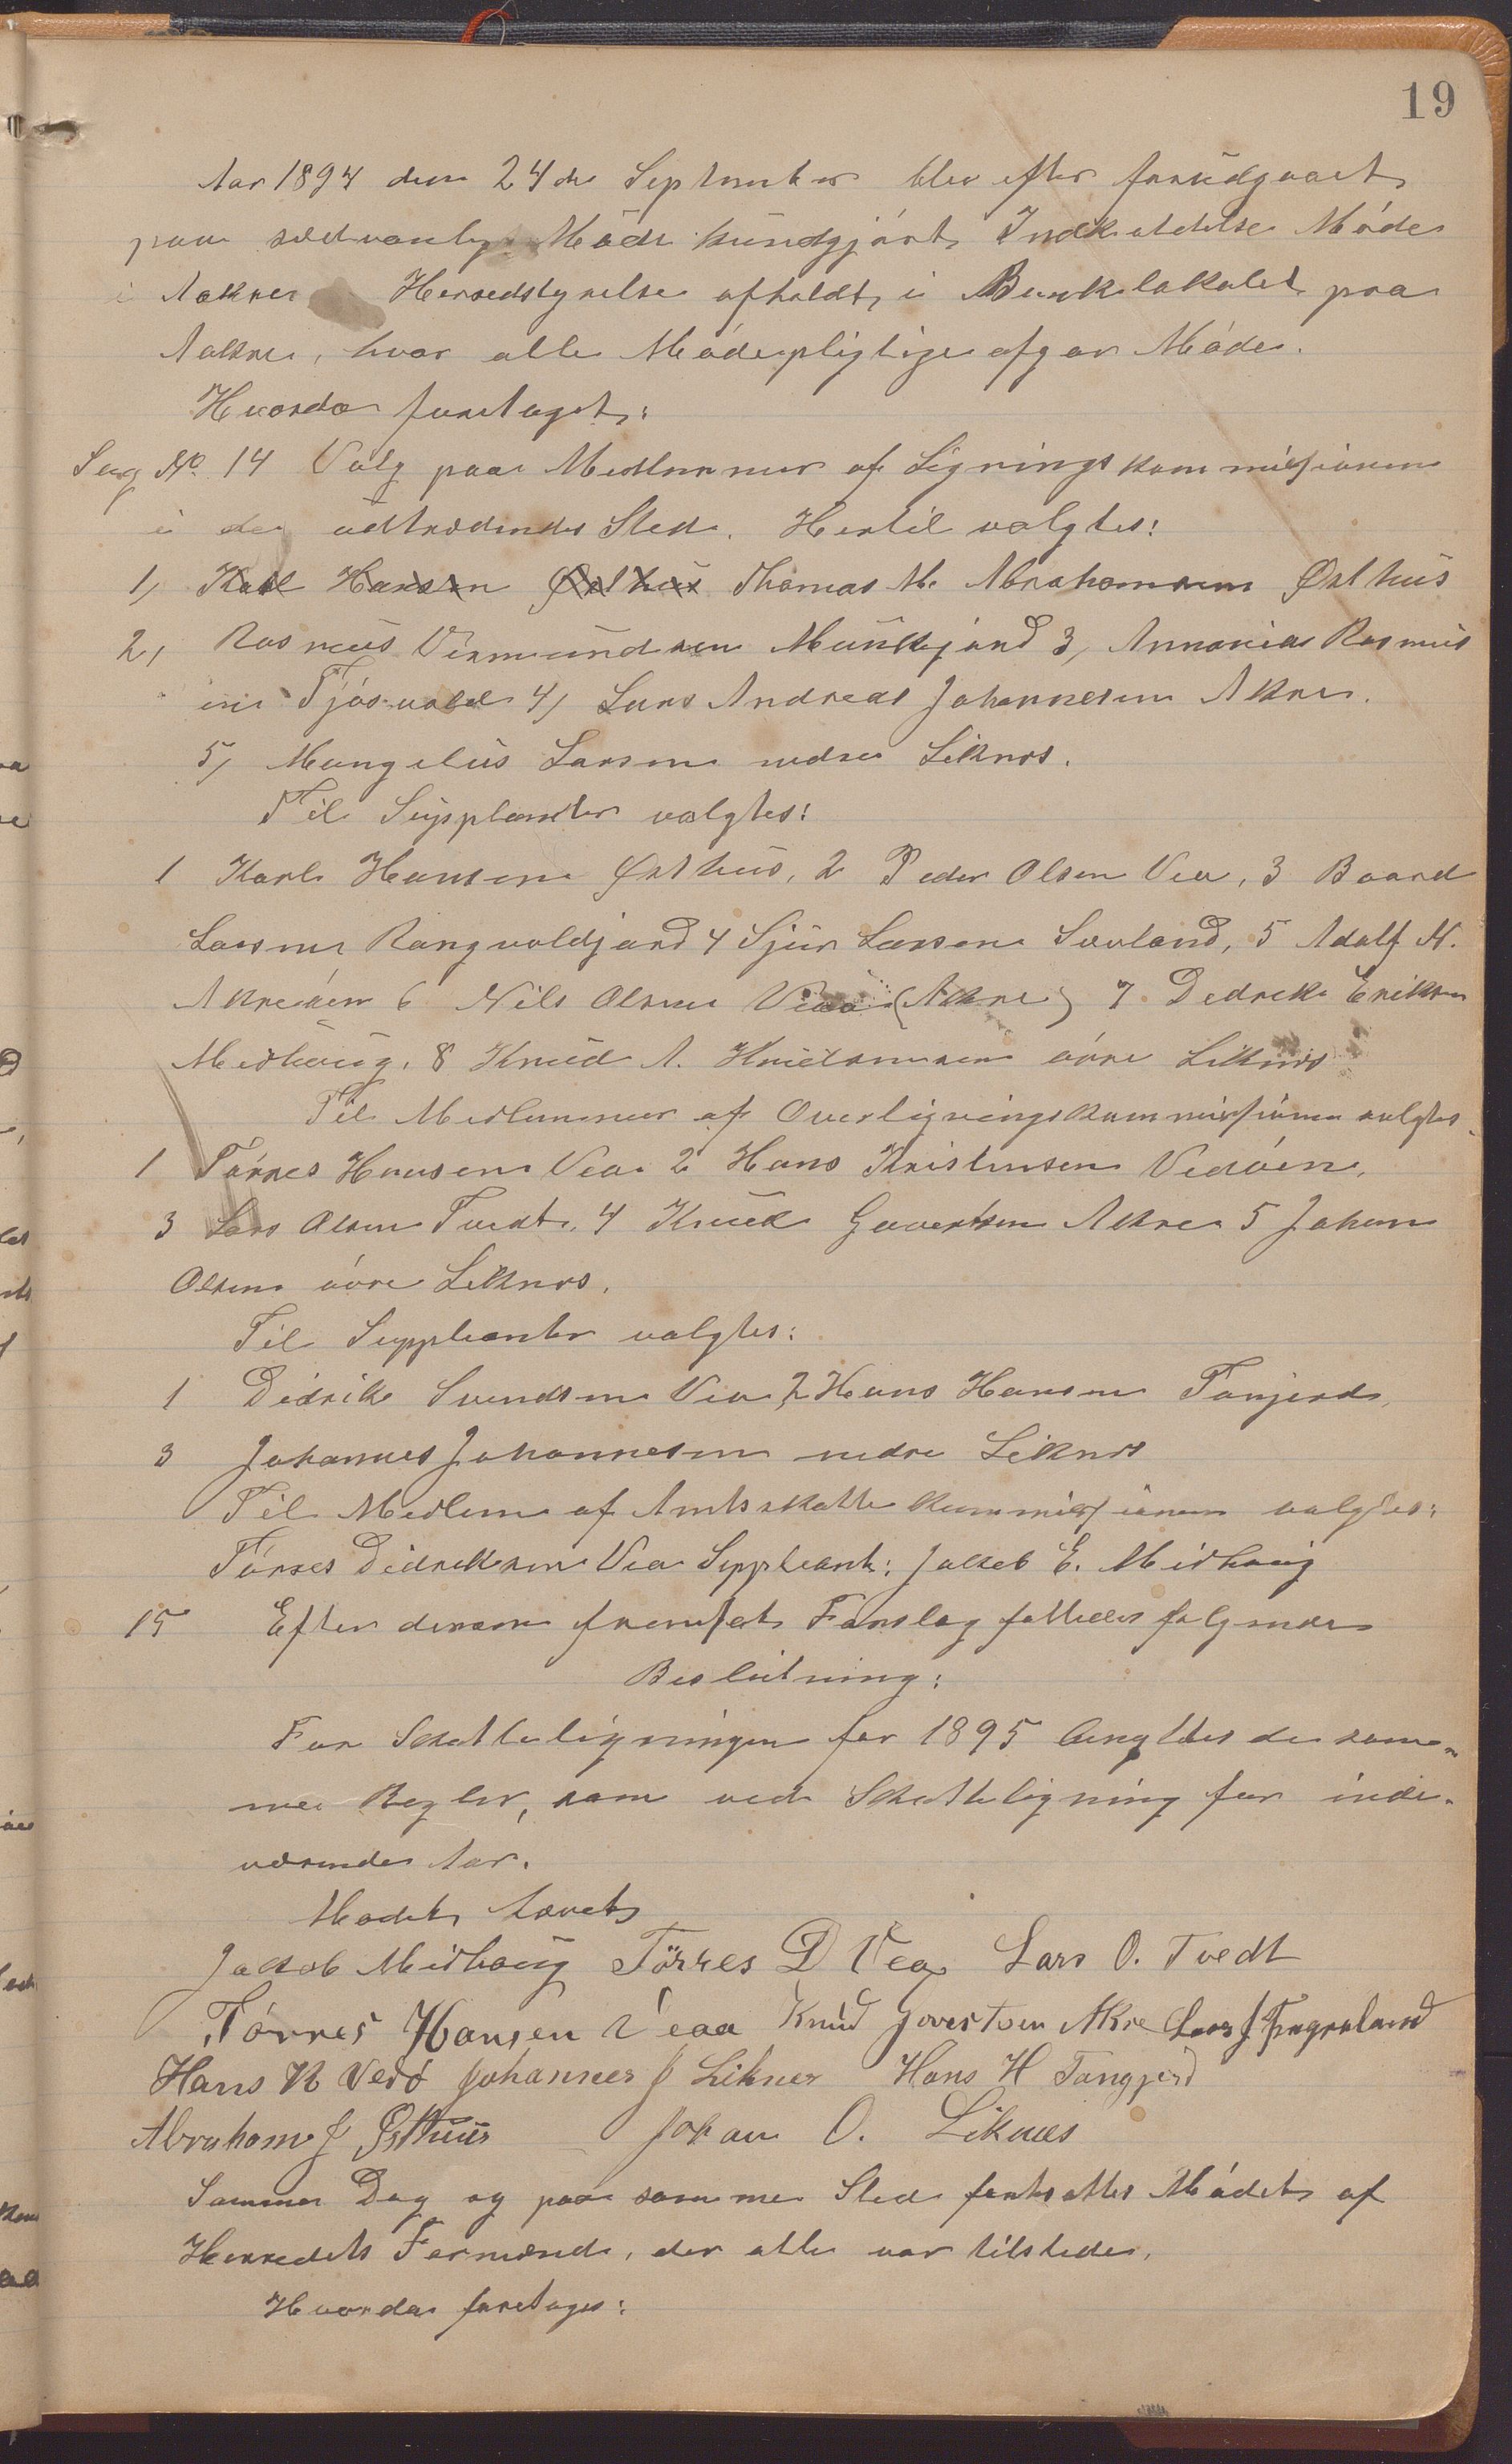 19
Aar 1894 den 24de September blev efter forudgaaet
paa sædvanlig Maade kundgjørt Indkaldelse Møde
i Aakre Herredstyrelse afholdt i Banklokalet paa
Aakre, hvor alle Mødepligtige afgav Møde.
Hvorda foretoges:
Sag No. 14 Valg paa Medlemmer af Ligningskommissionen
i de udtrædendes Sted. Hertil valgtes:
1, Karl Hansen Østhus Thomas M. Abrahamsen Østhus
2, Rasmus Vermundsen Munkejord 3, Annanias Rasmus
sen Tjøsvold 4, Lars Andreas Johannesen Akre.
5, Mangelus Larsen nedre Liknes.
Til Supplanter valgtes:
1 Karl Hansen Østhus, 2 Peder Olsen Vea, 3 Baard
Larsen Rangvaldjord 4 Sjur Larsen Sævland, 5 Adolf N.
Akrehavn 6 Nils Olsen Veaa (Akre) 7. Dedrek Eriksen
Medhaug, 8 Knud A. Knudsen øvre Liknes
Til Medlemmer af Overligningskommissionen valgtes.
1 Tørres Hansen Vea 2 Hans Kristensen Vedøen,
3 Lars Olsen Tvedt, 4 Knud Govertsen Akre 5 Johan
Olsen øvre Liknes.
Til Suppleanter valgtes:
1 Didrik Svendsen Vea, 2 Hans Hansen Tangjerd,
3 Johannes Johannesen nedre Liknes
Til Medlem af Amtsskattekommissionen valgtes:
Tørres Didreksen Vea Suppleant: Jakob E. Midhaug
15 Efter derom fremsat Forslag fattedes følgende
Beslutning:
For Skatteligningen for 1895 benyttes de sam-
me Regler, som ved Skatteligning for inde-
værende Aar.
Mødet hævet
Jakob Midhaug Törres D Vea Lars O. Tvedt
Tørres Hansen Veaa Knud Govertsen Akre Lars J Fagraland
Hans K Vedø Johannes J Liknes Hans H Tangjerd
Abraham J Østhuus Johan O. Liknes
Samme Dag og paa samme Sted fortsattes Mødet af
Herredets Formænd, der alle var tilstede.
Hvorda foretages: